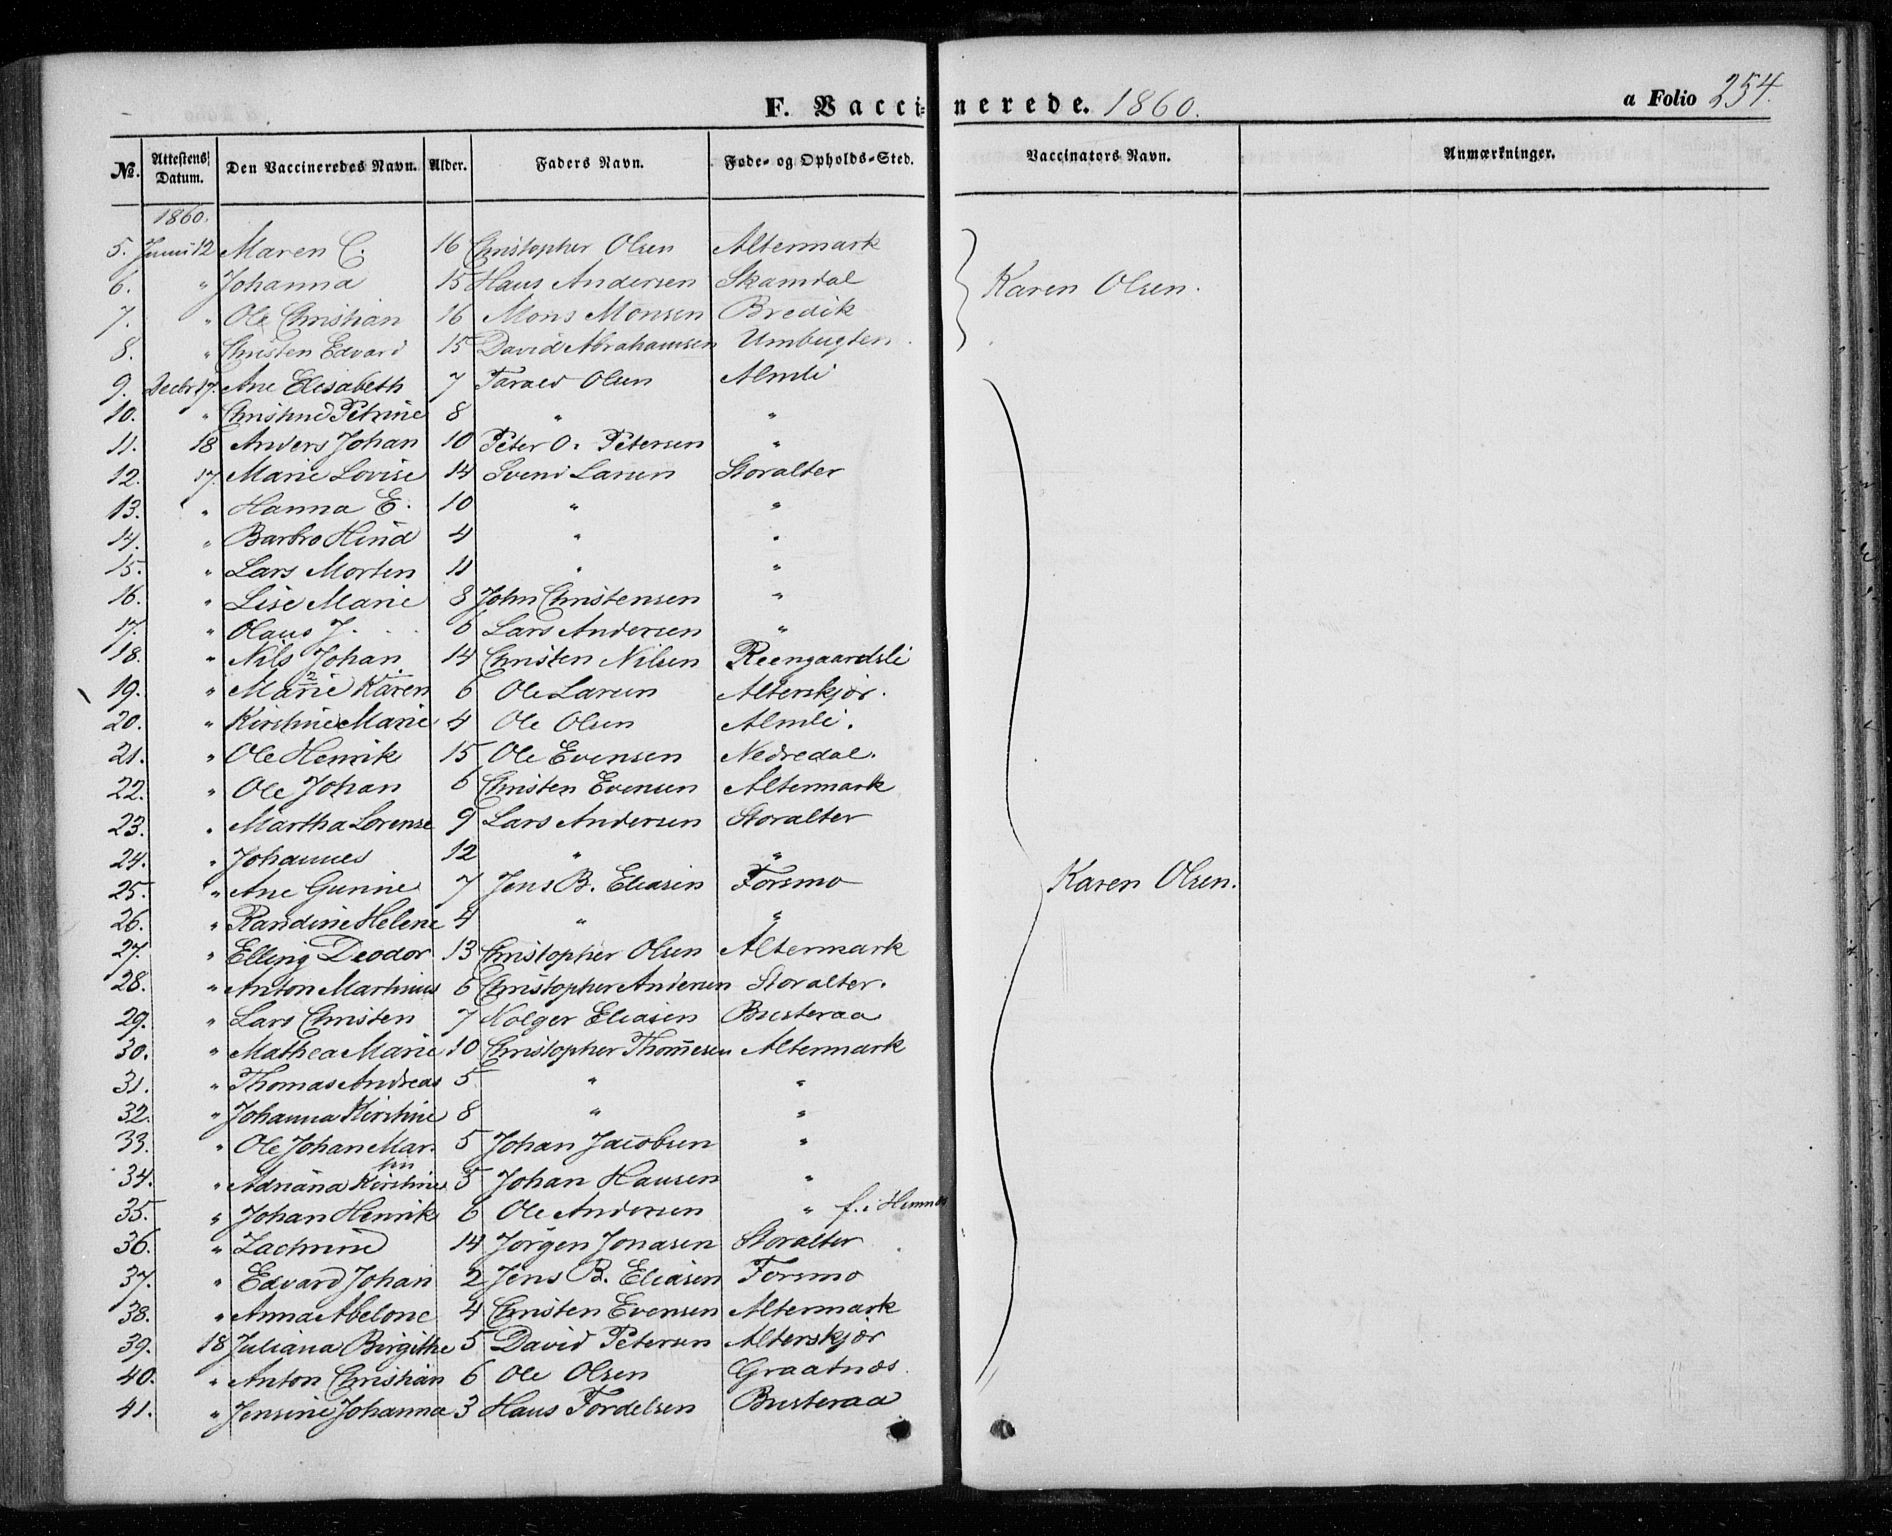 F. Vaccinerede. 1860. a Folio 254.
№. Attestens Datum. Den Vaccineredes Navn. Alder. Faders Navn. Føde- og Opholds-Sted. Vaccinators Navn. Anmærkninger.
1860.
5. Juni 12 Maren C. 16 Christopher Olsen Altermark
6. " Johanna 15 Hans Andersen Skamdal Karen Olsen.
7. " Ole Christian 16 Mons Monsen Bredik
8. " Christen Edvard 15 David Abrahamsen Umbugten.
9. Decbr 17. Ane Elisabeth 7 Tarald Olsen Almli
10. " Christine Petrine 8 " "
11. 18 Anders Johan 10 Peter O. Petersen "
12. 17. Marie Lovise 14 Svend Larsen Storalter
13. " Hanna E. 10 " "
14. " Barbro Hind 4 " "
15. " Lars Morten 11 " "
16. " Lise Marie 8 John Christensen "
17. " Olaus J. 6 Lars Andersen "
18. " Nils Johan 14 Christen Nilsen Reengaardsli
19. " Marie Karen 6 Ole Larsen Alterskjør.
20. " Kirstine Marie 4 Ole Olsen Almli.
21. " Ole Henrik 15 Ole Evensen Nedredal.
22. " Ole Johan 6 Christen Evensen Altermark
23. " Martha Lorense 9 Lars Andersen Storalter
24. " Johannes 12 " "
25. " Ane Gunine 7 Jens B. Eliasen Forsmo Karen Olsen.
26. " Randine Helene 4 " "
27. " Elling Deodor 13 Christopher Olsen Altermark
28. " Anton Martinus 6 Christopher Andersen Storalter.
29. " Lars Christen 7 Holger Eliasen Busteraa
30. " Mathea Marie 10 Christopher Thomesen Altermark
31. " Thomas Andreas 5 " "
32. " Johanna Kirstine 8 " "
33. " Ole Johan Martin 5 Johan Jacobsen "
34. " Adriana Kirstine 5 Johan Hansen "
35. " Johan Henrik 6 Ole Andersen " f. i Hemnes
36. " Zachrine 14 Jørgen Jonasen Storalter
37. " Edvard Johan 2 Jens B. Eliasen Forsmo
38. " Anna Abelone 4 Christen Evensen Altermark
39. 18 Juliana Birgithe 5 David Petersen Alterskjør
40. " Anton Christian 6 Ole Olsen Graatnæs.
41. " Jensine Johanna 3 Hans Tordelsen Busteraa